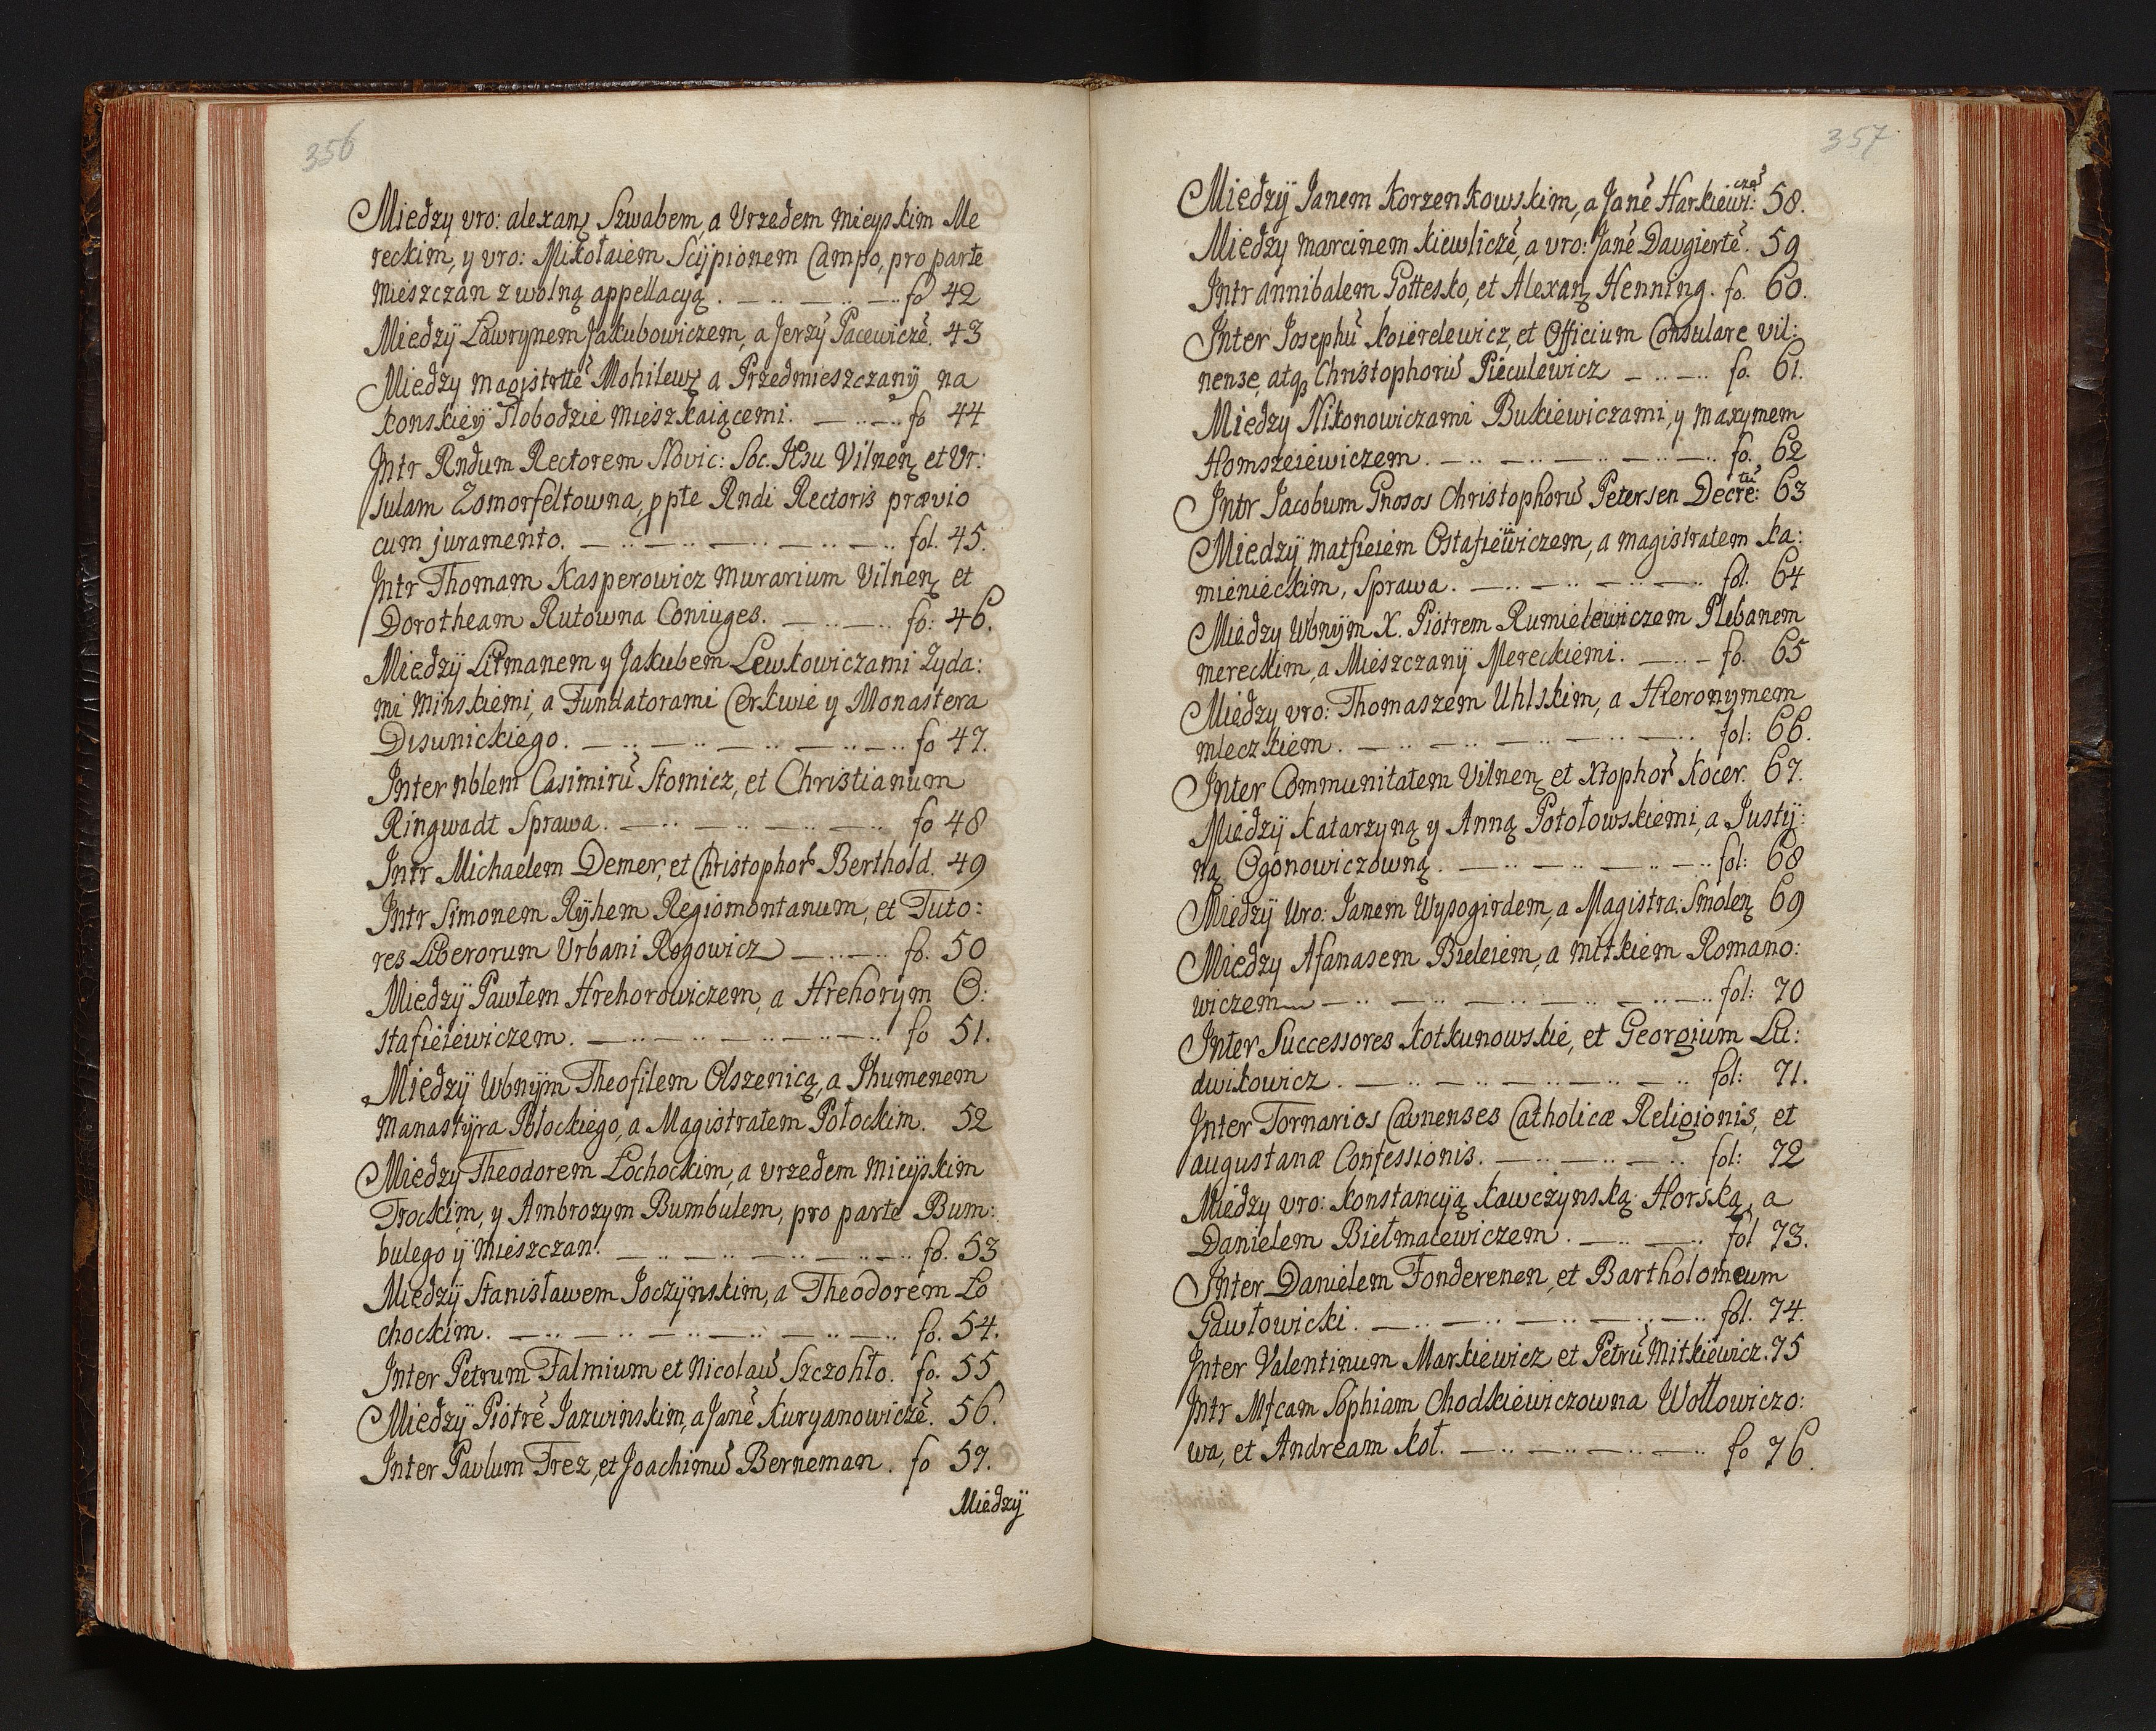 356
Między vro: alexanꝫ Szwabem, a Vrzedem mieyskim Me
reckim, y vro: Mikołaiem Scÿpionem Campo, pro parte
mieszczan z wolną appellacyą. fo 42
Miedzÿ Ławrynem Jakubowiczem, a Jerzÿ Pacewiczẽ. 43
Miedzy magistrttẽ Mohilewꝫ a Przedmieszczanÿ na
konskieÿ Słobodzie mieszkaiącemi. fo 44
Intr Rndum Rectorem Novic: Soc. JEsu Vilnenꝫ et Vr:
sulam Zomorfeltowna, ꝑpte Rndi Rectoris prævio
cum juramento. fol. 45.
Intr Thomam Kasperowicz murarium Vilnenꝫ et
Dorotheam Rutowna Coniuges. fo: 46.
Miedzÿ Litmanem y Jakubem Lewkowiczami Zyda:
mi minskiemi, a Fundatorami Cerkwie y Monastera
Disunickiego. fo 47.
Inter nblem Casimirũ Stomicz, et Christianum
Ringwadt Sprawa. fo 48
Intr Michaelem Demer, et Christophor̃ Berthold. 49
Intr Simonem Rÿhem Regiomontanum, et Tuto:
res Liberorum Urbani Rogowicz fo. 50
Miedzÿ Pawłem Hrehorowiczem, a Hrehorym O:
stafieiewiczem. fo 51.
Miedzÿ Wbnÿm Theofilem Olszenicą, a Jhumenem
manastÿra Połockiego, a Magistratem Połockim. 52
Miedzy Theodorem Łochockim, a vrzedem mieÿskim
Trockim, y Ambrozym Bumbulem, pro parte Bum:
bulego ÿ mieszczan. fo. 53
Miedzÿ Stanisławem Joczÿnskim, a Theodorem Lo
chockim. fo. 54.
Inter Petrum Falmium et Nicolaũ Szczohło. fo. 55
Miedzÿ Piotrẽ Jazwinskim, a Janẽ Kuryanowiczẽ. 56.
Inter Pavlum Frez, et Joachimũ Berneman. fo 57.
Miedzÿ
357
Miedzÿ Janem Korzenkowskim, a Janẽ Harkiewi:czẽ 58.
Miedzy marcinem Kiewliczẽ, a vro: Janẽ Davgiertẽ. 59
Intr annibalem Pottesko, et Alexanꝫ Henning. fo. 60.
Inter Josephũ Koierelewicz, et Officium Consulare vil:
nense, atqꝫ Christophorũ Pieculewicz fo. 61.
Miedzy Nikonowiczami Bukiewiczami, y maxymem
Homszeiewiczem. fo. 62
Intr Jacobum Gnosos Christophorũ Petersen Decre:tũ 63
Miedzÿ matfieiem Ostafieiewiczem, a magistratem Ka:
mienieckim, Sprawa. fol. 64
Miedzy Wbnÿm X. Piotrem Rumielewiczem Plebanem
mereckim, a Mieszczanÿ Mereckiemi. fo. 65
Miedzy vro: Thomaszem Uhlskim, a Hieronymem
mleczkiem. fol: 66.
Inter Communitatem Vilnenꝫ et Xtophor̃ Kocer. 67.
Miedzÿ Katarzyną y Anną Potołowskiemi, a Justÿ:
ną Ogonowiczowną. fol: 68
Miedzÿ Uro: Janem Wysogirdem, a Magistra: Smolenꝫ 69
Miedzy Afanasem Bieleiem, a mitkiem Romano:
wiczem fol: 70
Inter Successores Kotkunowskie, et Georgium Lu:
dwikowicz. fol: 71.
Inter Tornarios Cavnenses Catholicæ Religionis, et
augustanæ Confessionis. fol: 72
Miedzy vro: Konstancyą Kawczynską Horską, a
Danielem Biełmacewiczem. fol 73.
Inter Danielem Fonderenen, et Bartholomeum
Gawłowicki. fol. 74.
Inter Valentinum Markiewicz et Petrũ Mitkiewicz. 75
Intr Mfcam Sophiam Chodkiewiczowna Wołłowiczo:
wa, et Andream Kot. fo 76.